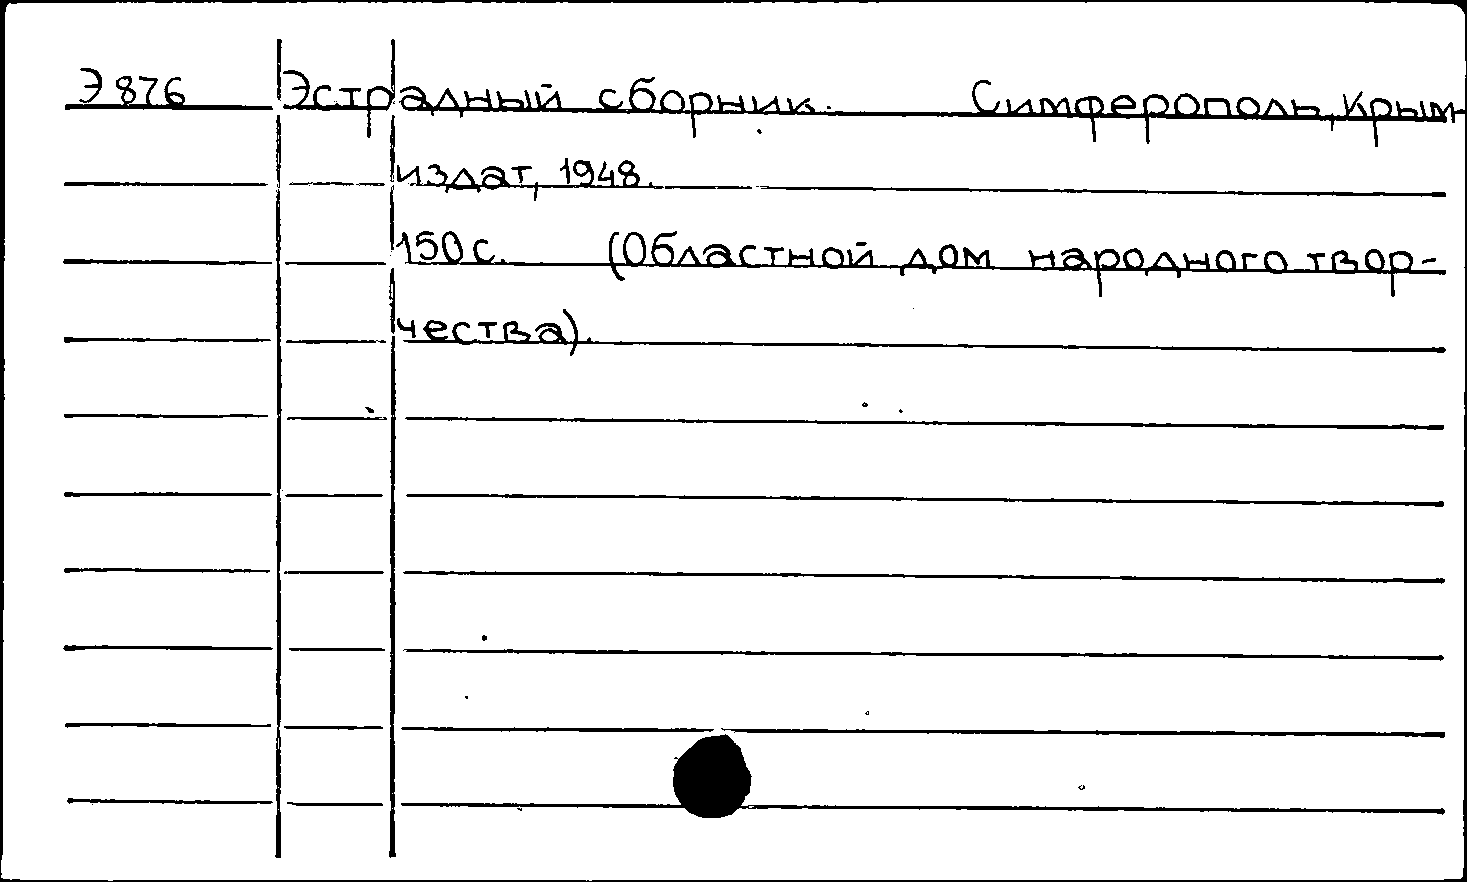 Э 876 Эстрадный сборник. Симферополь, Крым-
издат, 1948.
150 с. (Областной дом народного твор-
чества).